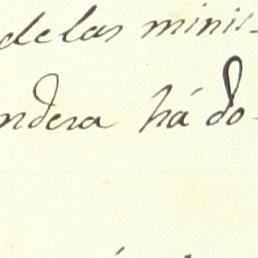 delas minis-
ndera há do-